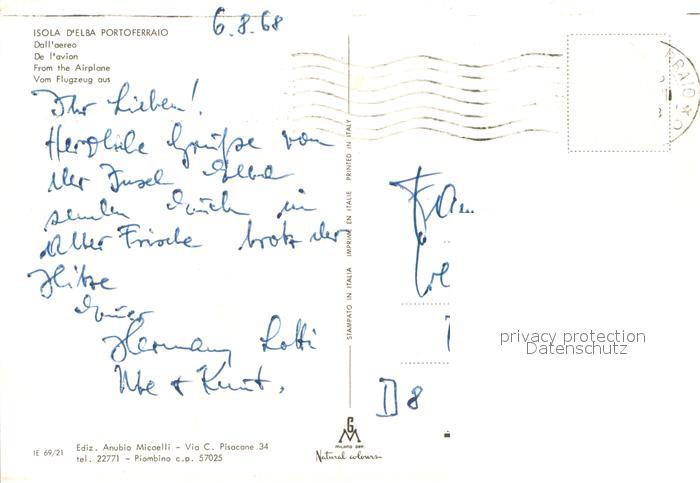 6.8.68
ISOLA D'ELBA PORTOFERRAIO
Dall'aereo
De l'avion
From the Airplane
Vom Flugzeug aus
Ihr Lieben!
Herzliche Grüße von
der Insel Elba
senden Euch in
alter Frische trotz der
Hitze
Euer
Hermann Lotti
Ute + Kurt.
STAMPATO IN ITALIA IMPRIMÉ EN ITALIE PRINTED IN ITALY
Fam.
D 8
privacy protection
Datenschutz
IE 69/21
Ediz. Anubio Micaelli - Via C. Pisacane 34
tel. 22771 - Piombino c.p. 57025
GM
MILANO
Natural colours